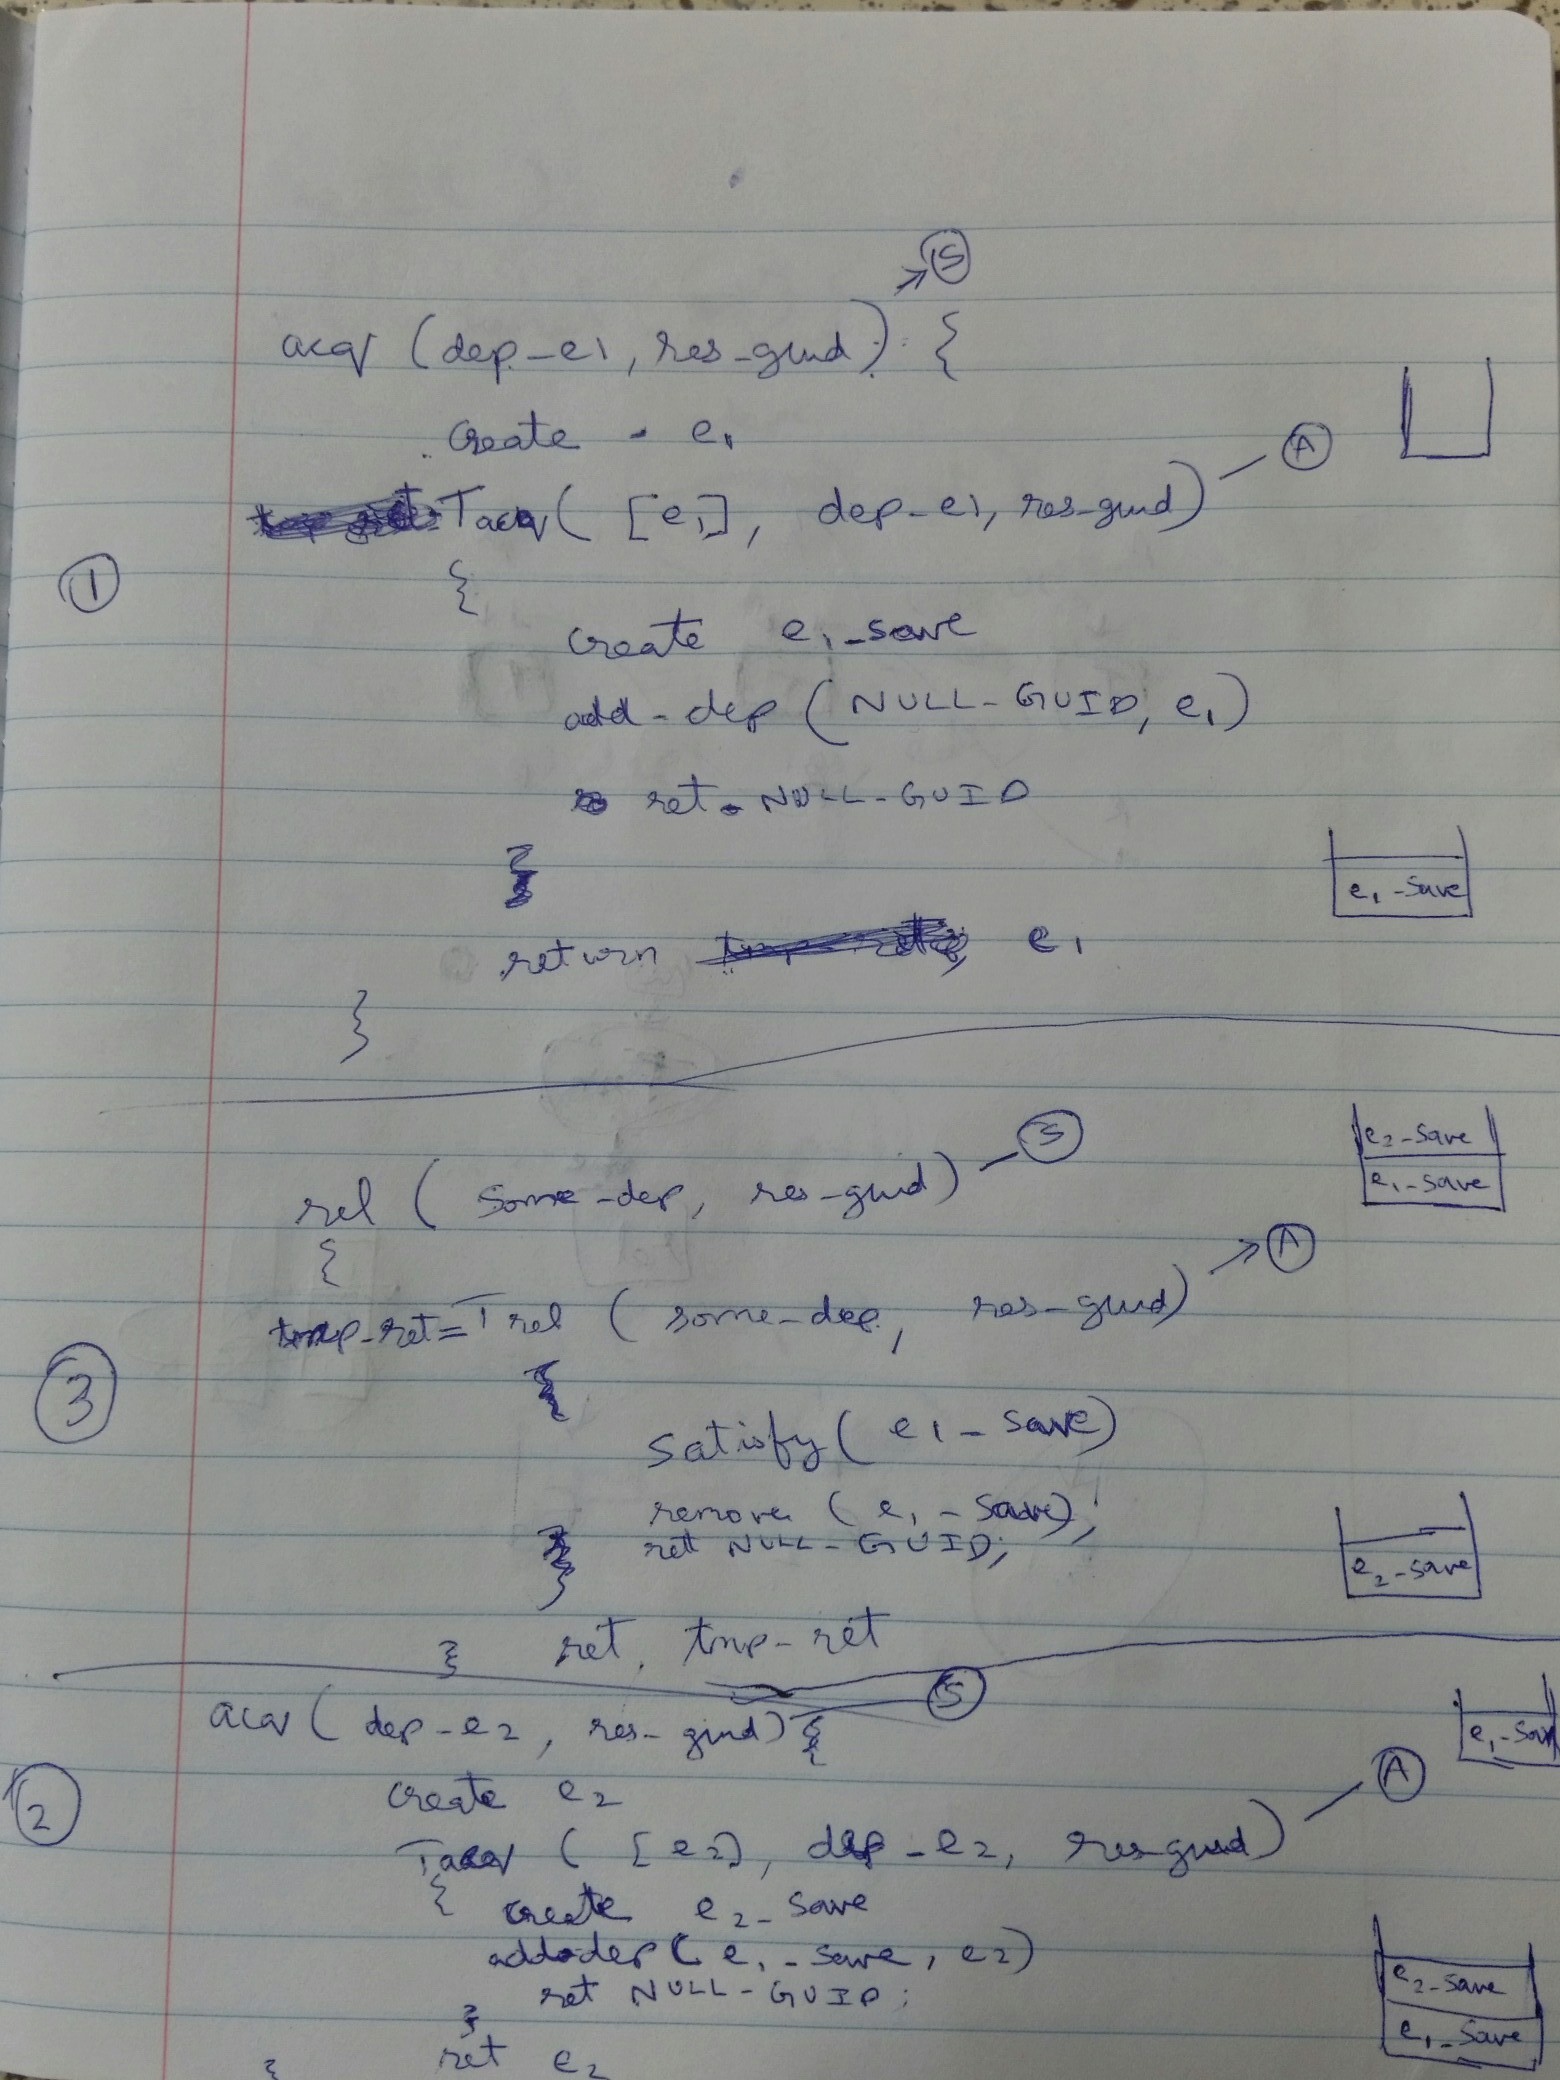 S
acq (dep_e1, res_guid) {
create e1
A
Tacq ( [e1], dep_e1, res_guid)
1
{
create e1_save
add-dep (NULL-GUID, e1)
ret NULL-GUID
}
e1_save
return e1
}
S
e2_save
e1_save
rel ( some-dep, res_guid)
{
A
tmp-ret = Trel ( some-dep, res_guid)
3
{
satisfy( e1_save)
remove ( e1_save);
ret NULL-GUID;
e2_save
}
} ret tmp-ret
S
acq ( dep-e2, res_guid) {
e1_save
2
create e2
A
Tacq ( [e2], dep_e2, res_guid)
{ create e2_save
add-dep ( e1_save, e2)
ret NULL-GUID;
e2_save
}
e1_save
} ret e2